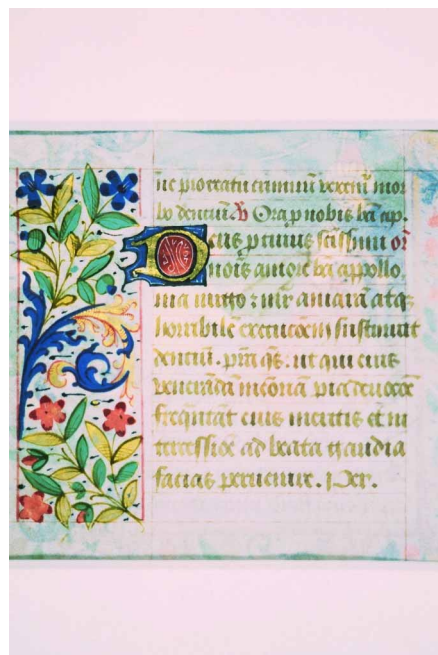 ne pro reatu criminũ vexetũ mor
bo dentiũ. V Ora p nobis bã ap.
Deus p cuius scissimi
nois amore bã appollo
nia uirgo ⁊ mr amarã atqȝ
horribile excucoem sustinuit
dentiũ. pm qs. ut qui eius
venerãda meoria pia deuocoe
freqntãt eius meritis et in
tercessioe ad beata gaudia
facias peruenire. Per.